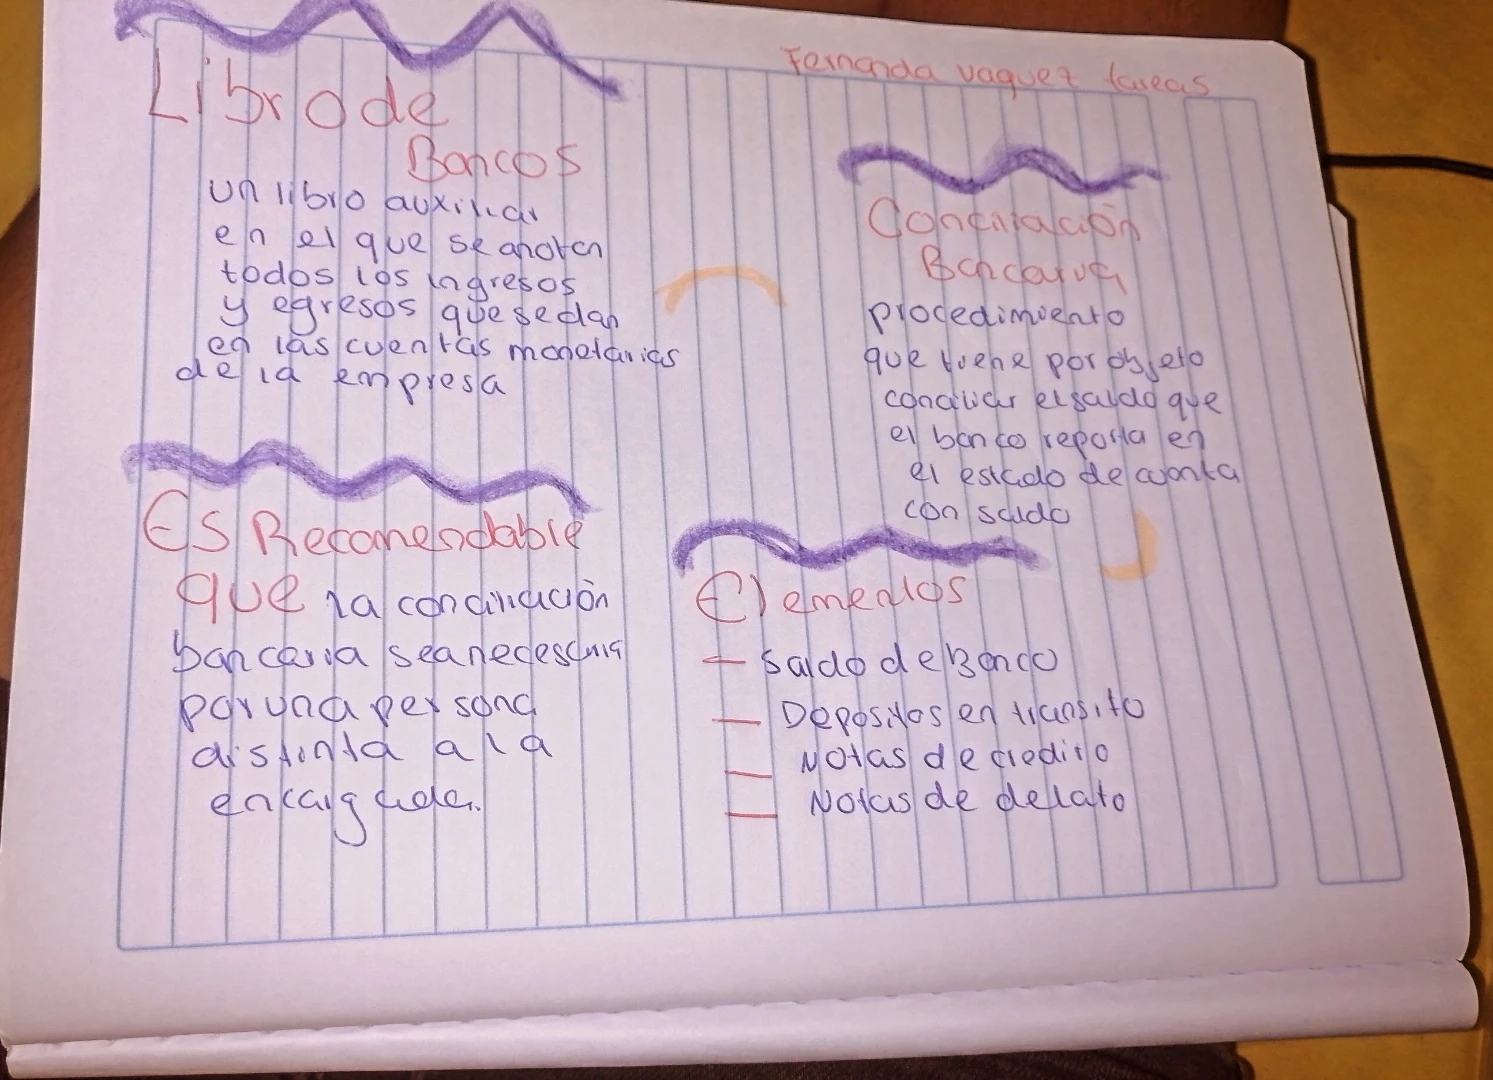 Fernanda vaquez tareas
Libro de
Bancos
un libro auxiliar
en el que se anotan
todos los ingresos
y egresos que se dan
en las cuentas monetarias
de la empresa
Conciliación
Bancaria
procedimiento
que tiene por objeto
conciliar el saldo que
el banco reporta en
el estado de cuenta
con saldo
Es Recomendable
que la conciliación
bancaria sea necesaria
por una persona
distinta a la
encargada.
Elementos
— saldo de Banco
— Depositos en transito
— Notas de credito
— Notas de debato